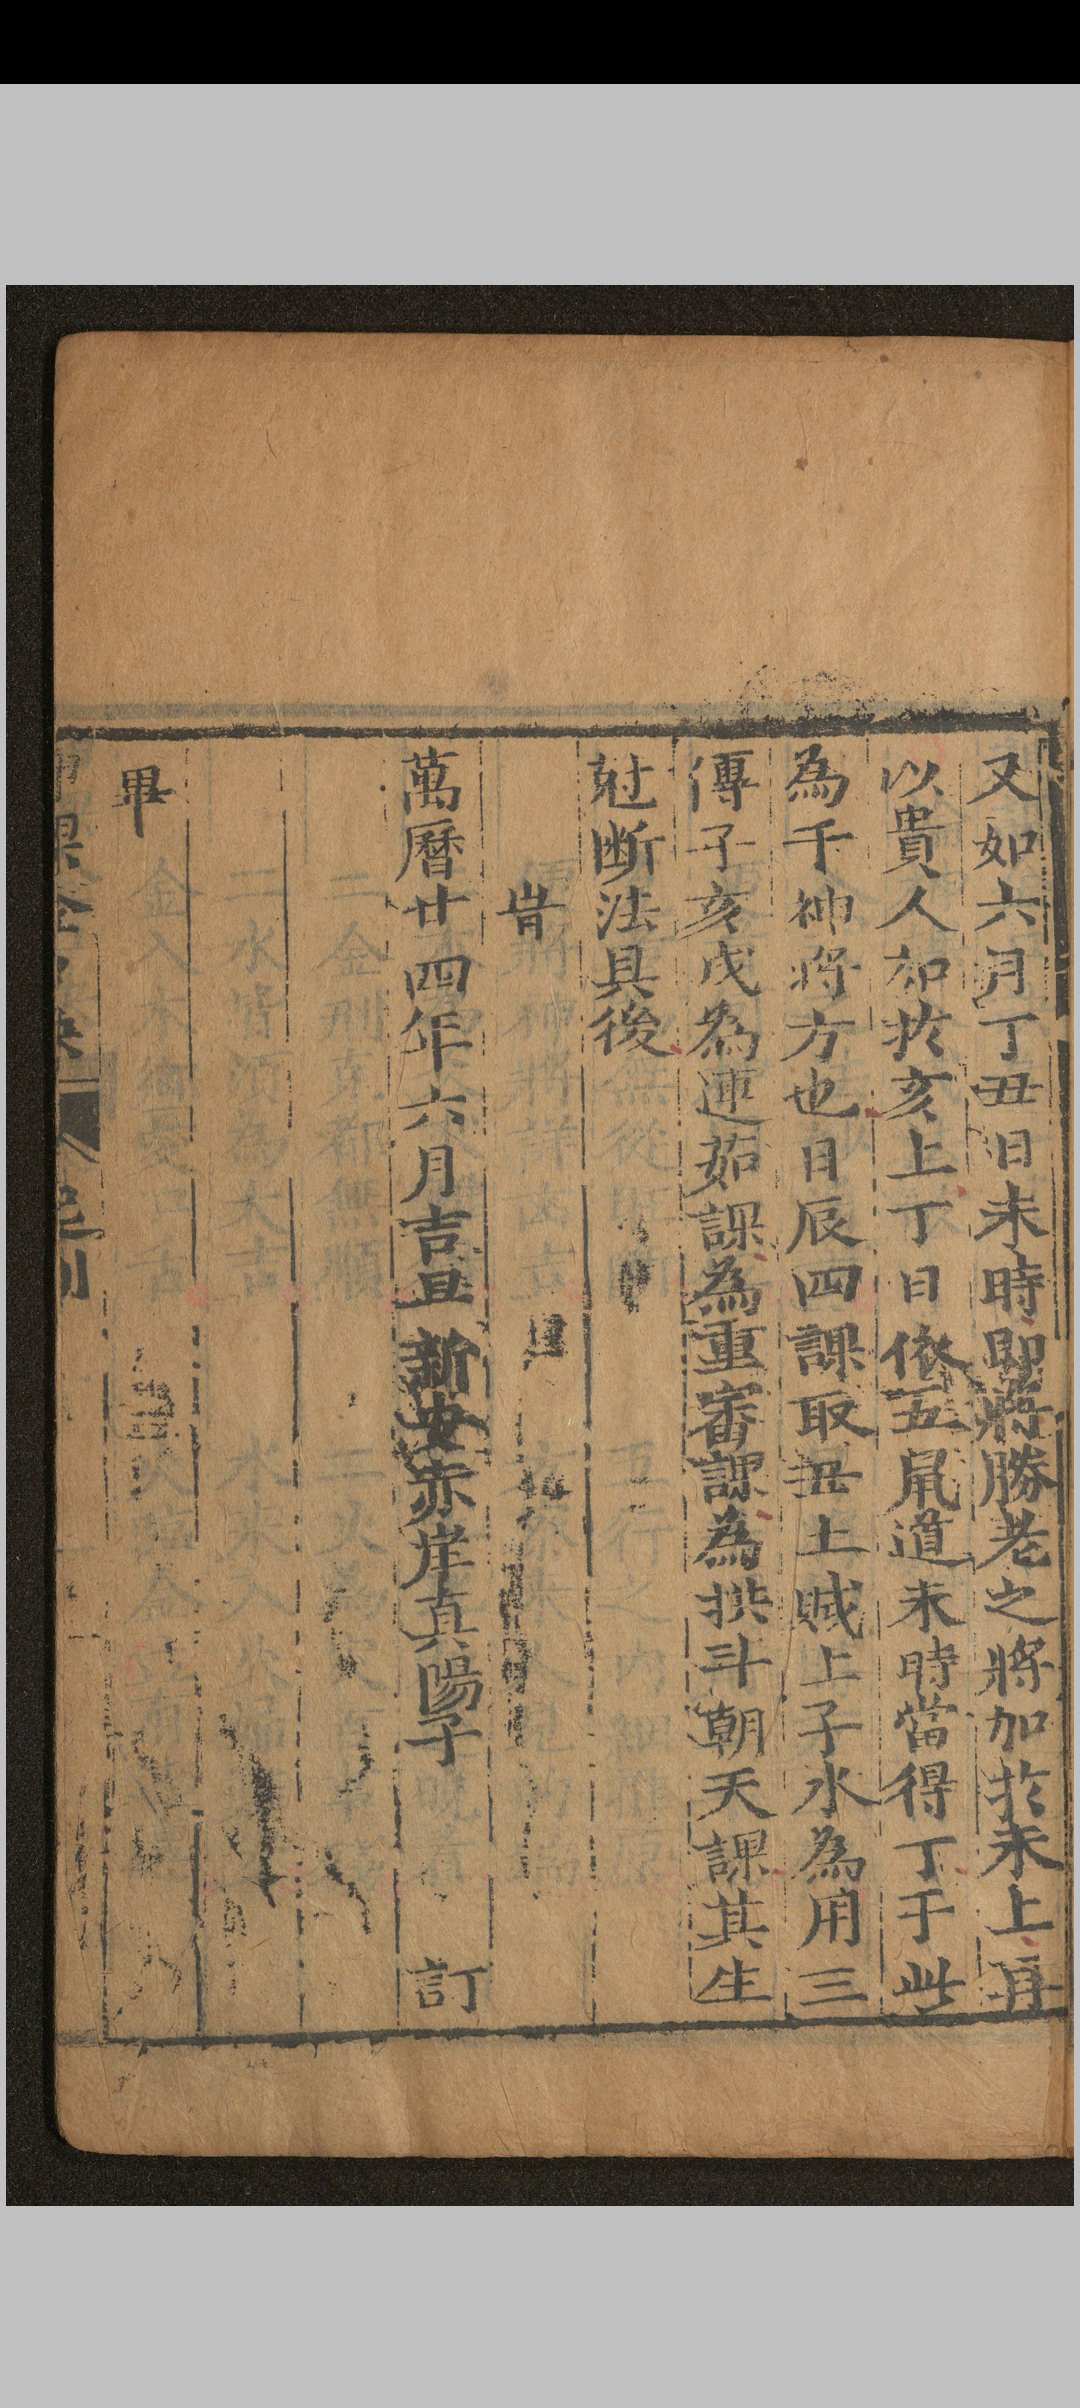 又如六月丁丑日未時即將勝老之將加扵未上再
以貴人加扵亥上丁日依五鼠遁未時當得丁于此
為干神將方也日辰四課取丑土賊上子水為用三
傳子亥戌為連茹課為重審課為拱斗朝天課其生
尅断法具後
旹
萬曆廿四年六月吉旦新安赤崖真陽子訂
畢